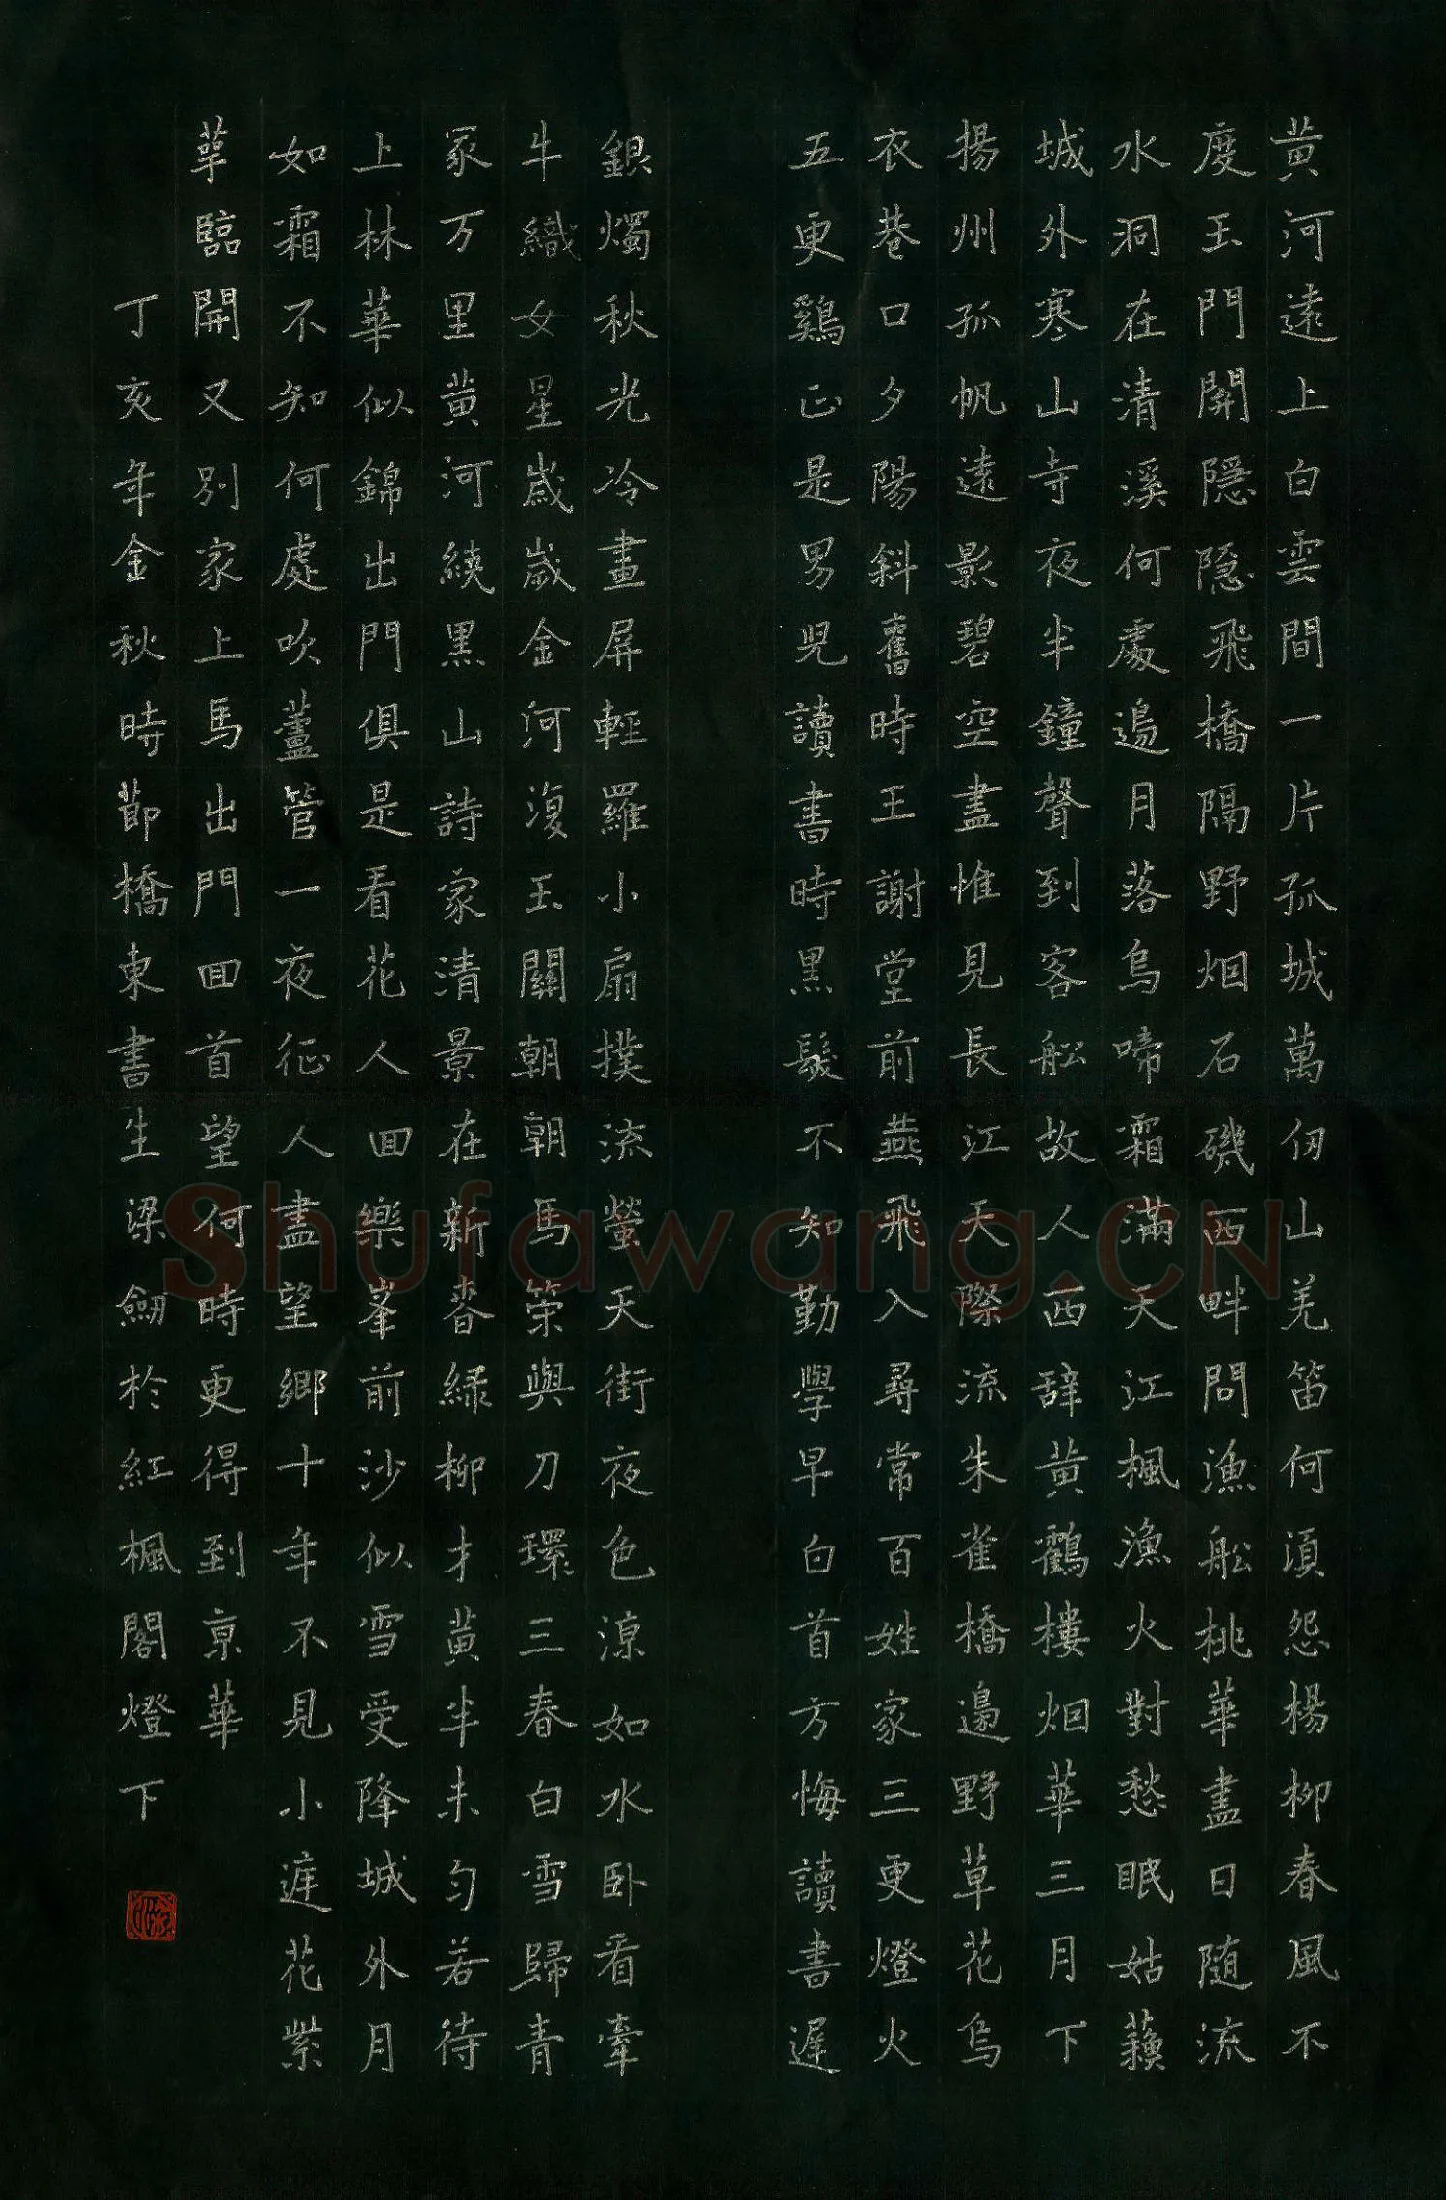 黃河遠上白雲間一片孤城萬仞山羌笛何須怨楊柳春風不
度玉門關隱隱飛橋隔野烟石磯西畔問漁船桃華盡日随流
水洞在清溪何處邊月落烏啼霜滿天江楓漁火對愁眠姑蘓
城外寒山寺夜半鐘聲到客船故人西辞黃鶴樓烟華三月下
揚州孤帆遠影碧空盡惟見長江天際流朱雀橋邊野草花烏
衣巷口夕陽斜舊時王謝堂前燕飛入尋常百姓家三更燈火
五更鷄正是男兒讀書時黑髮不知勤學早白首方悔讀書遲
銀燭秋光冷畫屏輕羅小扇撲流螢天街夜色涼如水卧看牽
牛織女星歲歲金河復玉關朝朝馬策與刀環三春白雪歸青
冢万里黃河繞黑山詩家清景在新春緑柳才黃半未勻若待
上林華似錦出門俱是看花人回樂峯前沙似雪受降城外月
如霜不知何處吹蘆管一夜征人盡望鄉十年不見小庭花紫
萼臨開又別家上馬出門回首望何時更得到京華
丁亥年金秋時節橋東書生梁劒於紅楓閣燈下
Shufawang.CN